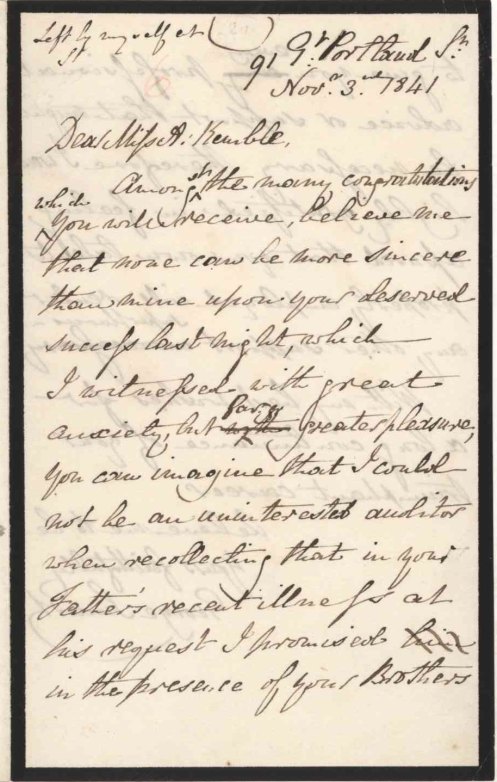 Left by myself at
St
91 Gt Portland St.
Novr. 3rd. 1841
Dear Miss A. Kemble,
Amongst the many congratulations
which
You will receive, believe me
that none can be more sincere
than mine upon your deserved
success last night, which
I witnessed with great
far
anxiety, but with greater pleasure,
you can imagine that I could
not be an uninterested auditor
when recollecting that in your
Father's recent illness at
his request I promised him
in the presence of your Brothers